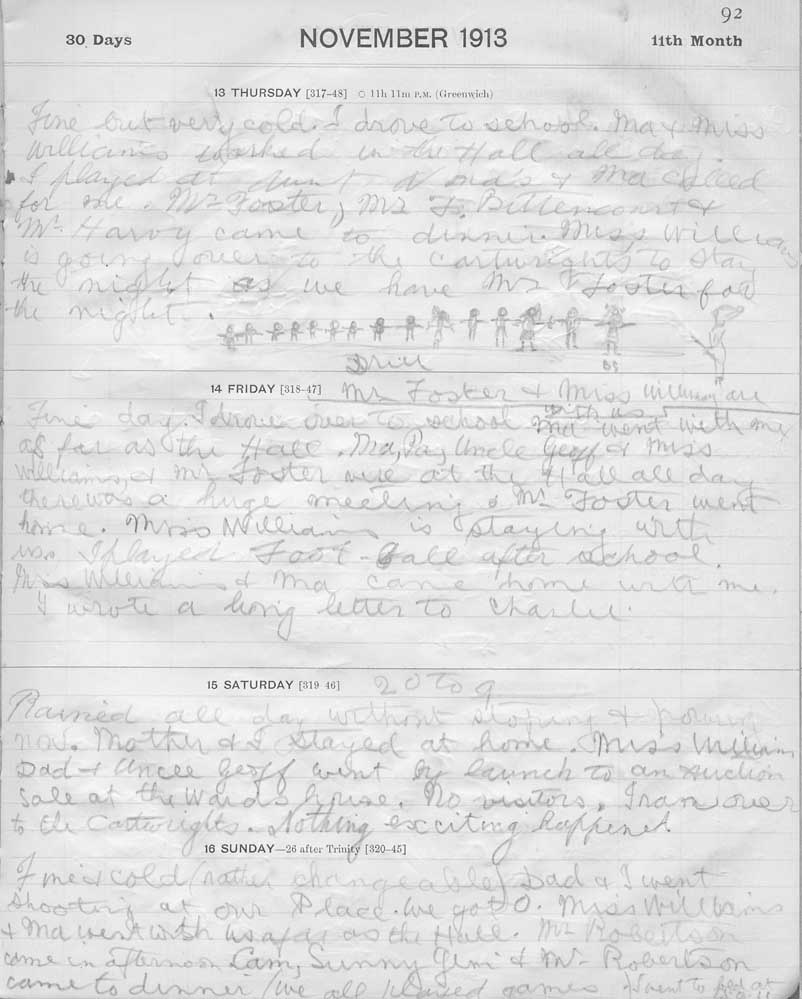 92
30 Days NOVEMBER 1913 11th Month
13 THURSDAY [317-48] ○ 11h 11m P.M. (Greenwich)
Fine but very cold. I drove to school. Ma & Miss
Williams worked in the Hall all day.
I played at Aunt & Ma called
for me. Mr Foster, Mr F. Bittencourt &
Mr. Harvy came to dinner. Miss Williams
is going over to the Cartwrights to stay
the night as we have Mr Foster for
the night.
Drill
14 FRIDAY [318-47] Mr Foster & Miss Williams are
with us
Fine day. I drove over to school & Ma went with me
as far as the Hall. Ma, Pa, Uncle Geoff & Miss
Williams, & Mr Foster were at the Hall all day
there was a huge meeting & Mr Foster went
home. Miss Williams is staying with
us. I played Foot-ball after school.
Miss Williams & Ma came home with me.
I wrote a long letter to Charlie.
15 SATURDAY [319 46] 20 to 9
Rained all day without stoping & pouring
now. Mother & I stayed at home. Miss Williams
Dad & Uncle Geoff went by launch to an auction
sale at the Wards house. No visitors. I ran over
to the Cartwrights. Nothing exciting happened.
16 SUNDAY—26 after Trinity [320-45]
Fine & cold (rather changeable) Dad & I went
shooting at our Place. We got 0. Miss Williams
& Ma went with us as far as the Hall. Mr Robertson
came in afternoon Cam, Sunny & Mr Robertson
came to dinner we all played games went to at